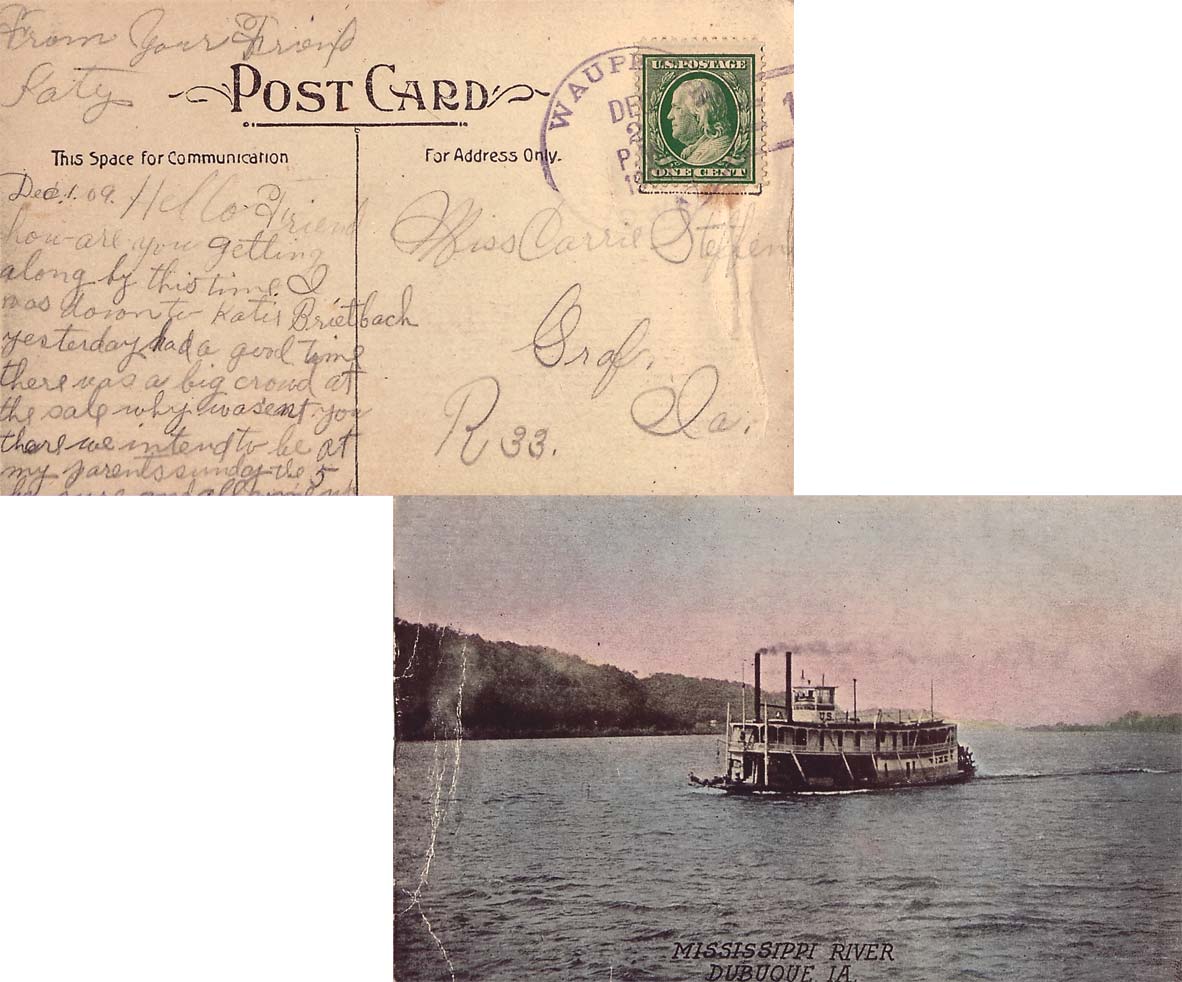 From Your Friend
Katy
POST CARD
This Space for Communication
For Address Only.
WAUPE
DE
2
P
1
U.S. POSTAGE
ONE CENT
1
Dec, 1. 09. Hello Friend
how are you getting
along by this time. I
was down to Katis Brietbach
yesterday had a good time
there was a big crowd at
the sale why wasent you
there we intend to be at
my parents sunday the 5
be sure and all
Miss Carrie Steffen
Graf,
Ia.
R 33.
U.S.
MISSISSIPPI RIVER
DUBUQUE, IA.